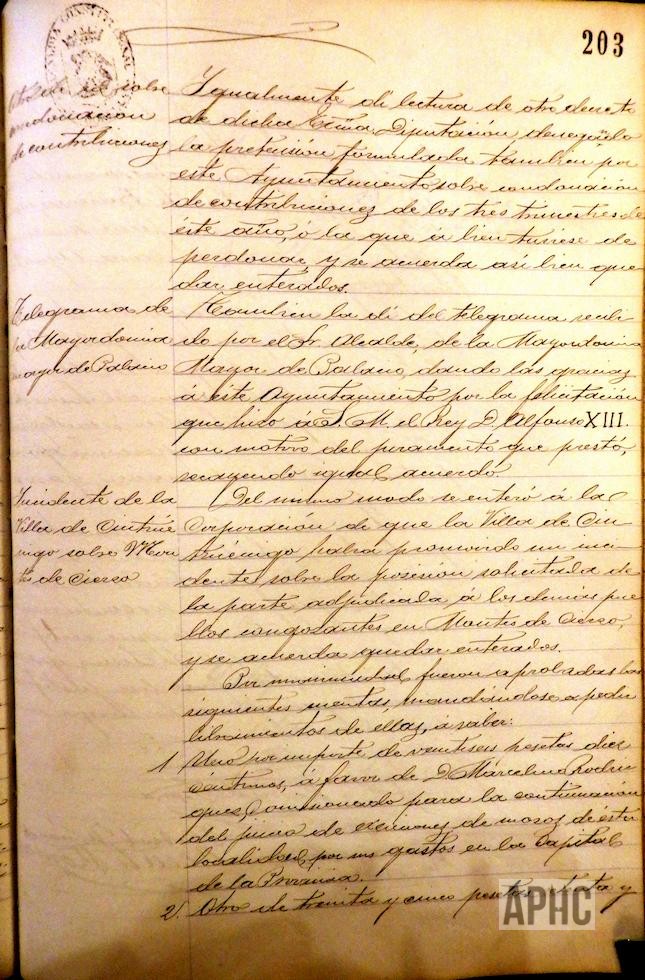 203
Otro id. id. sobre
condonacion
de contribuciones
Igualmente dí lectura de otro decreto
de dicha Excma. Diputación denegando
la pretensión formulada tambien por
este Ayuntamiento sobre condonación
de contribuciones de los tres trimestres de
éste año, ó la que á bien tuviese de
perdonar, y se acuerda así bien que
dar enterados.
Telegrama de
la Mayordomia
mayor de Palacio
Tambien la dí del telegrama recibi
do por el Sr. Alcalde, de la Mayordomia
Mayor de Palacio, dando las gracias
á este Ayuntamiento por la felicitación
que hizo á S. M. el Rey D. Alfonso XIII.
con motivo del juramento que prestó,
recayendo igual acuerdo.
Incidente de la
Villa de Cintrué
nigo sobre Mon
tes de Cierzo
Del mismo modo se enteró á la
Corporación de que la Villa de Cin
truénigo habia promovido un inci-
dente sobre la posesion solicitada de
la parte adjudicada, á los demás pue
blos congozantes en Montes de Cierzo,
y se acuerda quedar enterados.
Por unanimidad fueron aprobadas las
siguientes cuentas, mandándose expedir
libramientos de ellas, á saber:
1 Una por importe de veintiseis pesetas diez
céntimos, á favor de D. Marcelino Rodri
guez, comisionado para la continuación
del juicio de exenciones de mozos de ésta
localidad, por sus gastos en la Capital
de la Provincia.
2. Otra de treinta y cinco pesetas, y
APHC